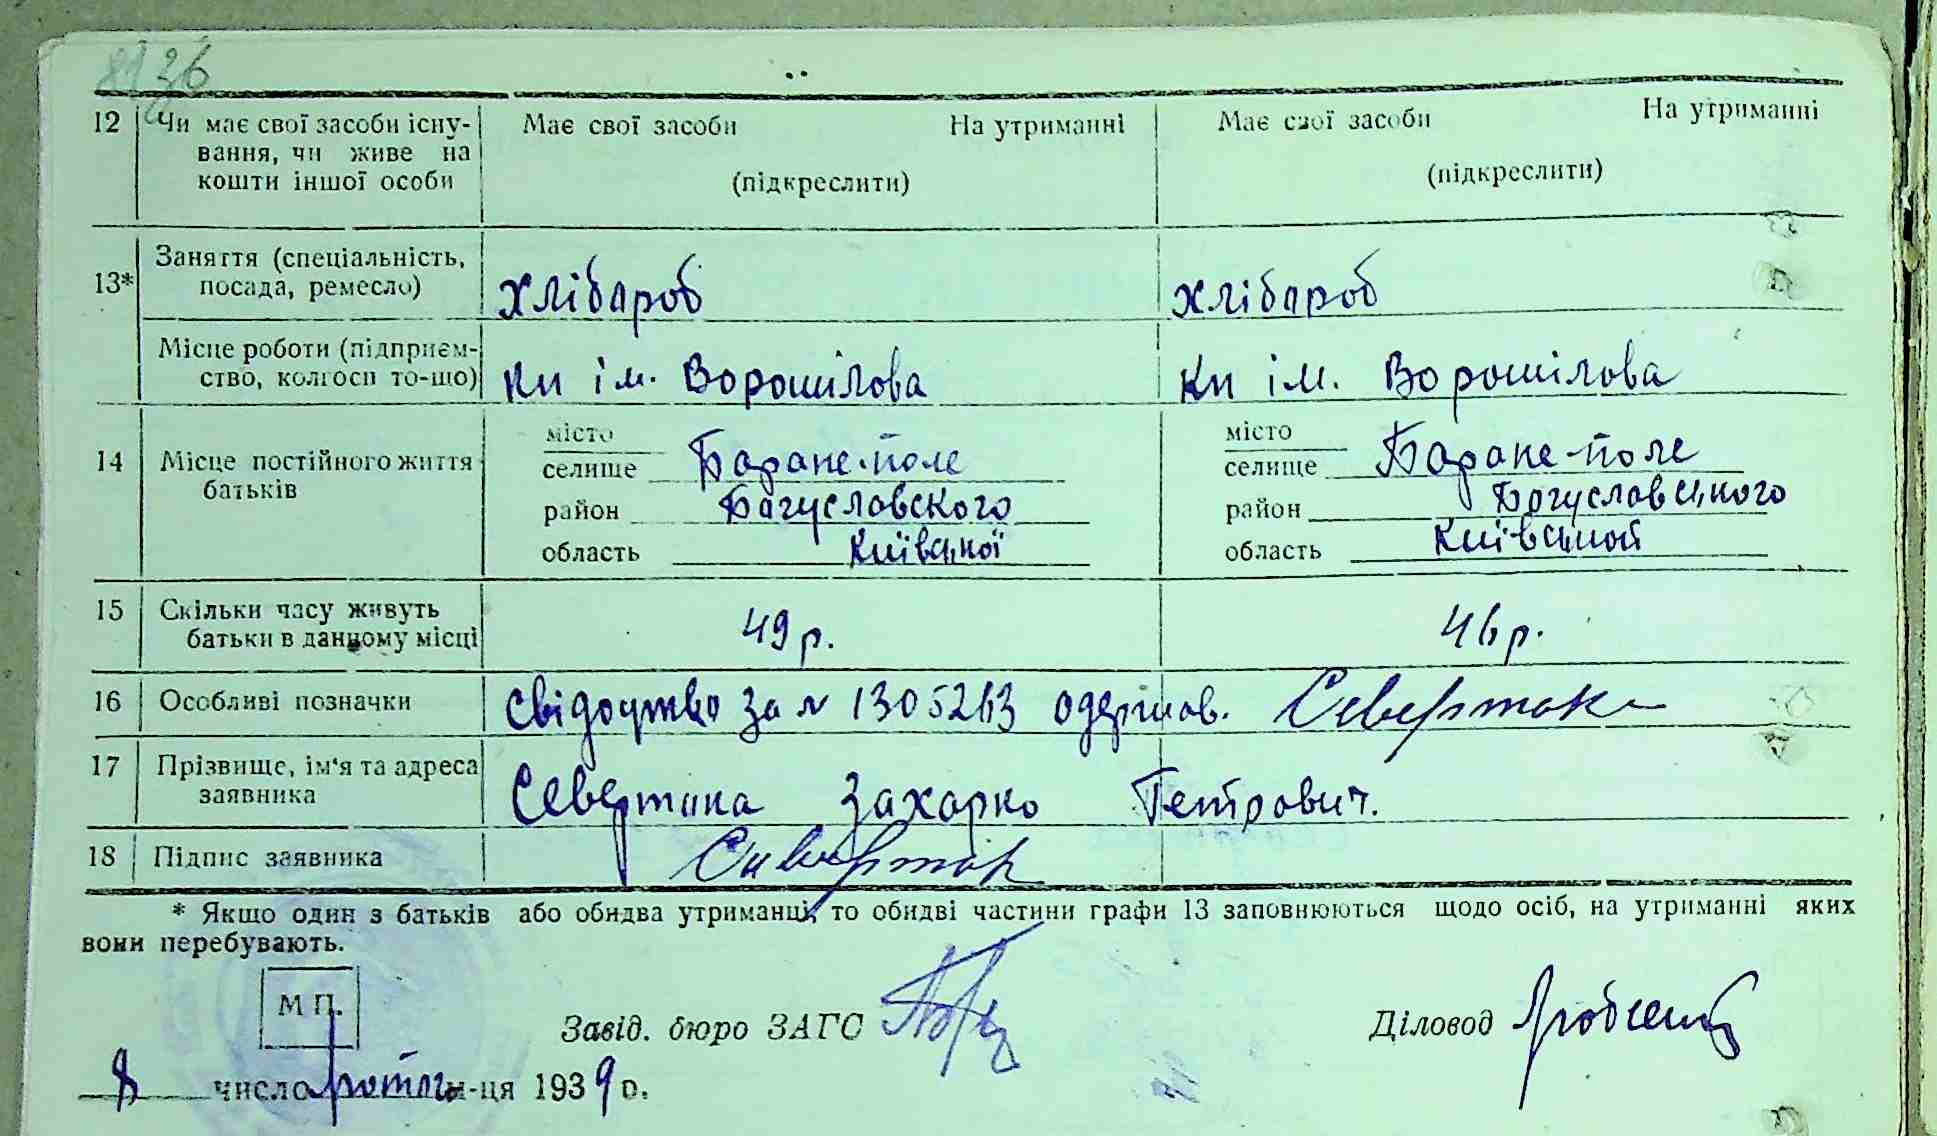 36
12 Чи має свої засоби існу- Має свої засоби На утриманні Має свої засоби На утриманні
вання, чи живе на
кошти іншої особи (підкреслити) (підкреслити)
13* Заняття (спеціальність,
посада, ремесло) Хлібароб Хлібароб
Місце роботи (підприєм-
ство, колгосп то-що) Кп ім. Ворошілова Кп ім. Ворошілова
14 Місце постійного життя
батьків
місто місто
селище Баране-поле селище Баране-поле
район Багуславского район Богуславського
область Київської область Київської
15 Скільки часу живуть
батьки в данному місці 49 р. 46 р.
16 Особливі позначки Свідоцтво за № 1305263 одержав.
17 Прізвище, ім'я та адреса
заявника Севертака Захарко Петрович.
18 Підпис заявника
* Якщо один з батьків або обидва утриманці, то обидві частини графи 13 заповнюються щодо осіб, на утриманні яких
вони перебувають.
М П.
Завід. бюро ЗАГС Діловод
8 число лютого м-ця 1939 р.